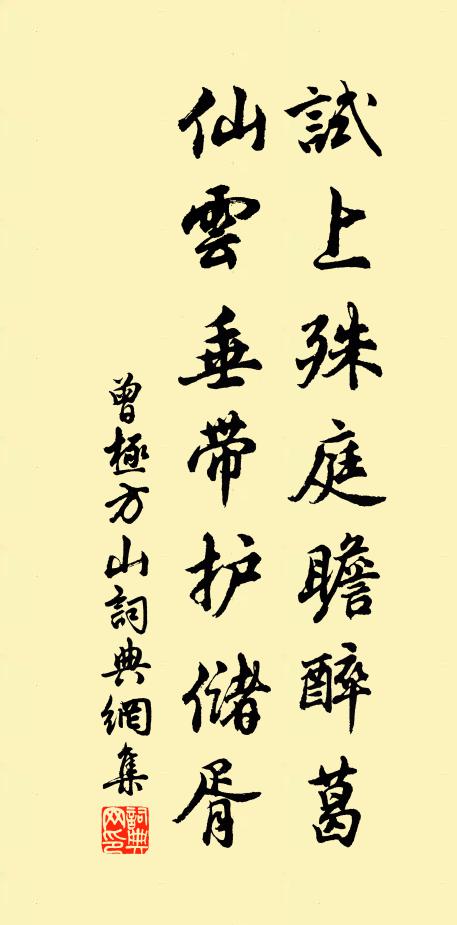 試上殊庭瞻醉葛
仙雲垂带护儲胥
曾極方山詞典網集
詞典网印